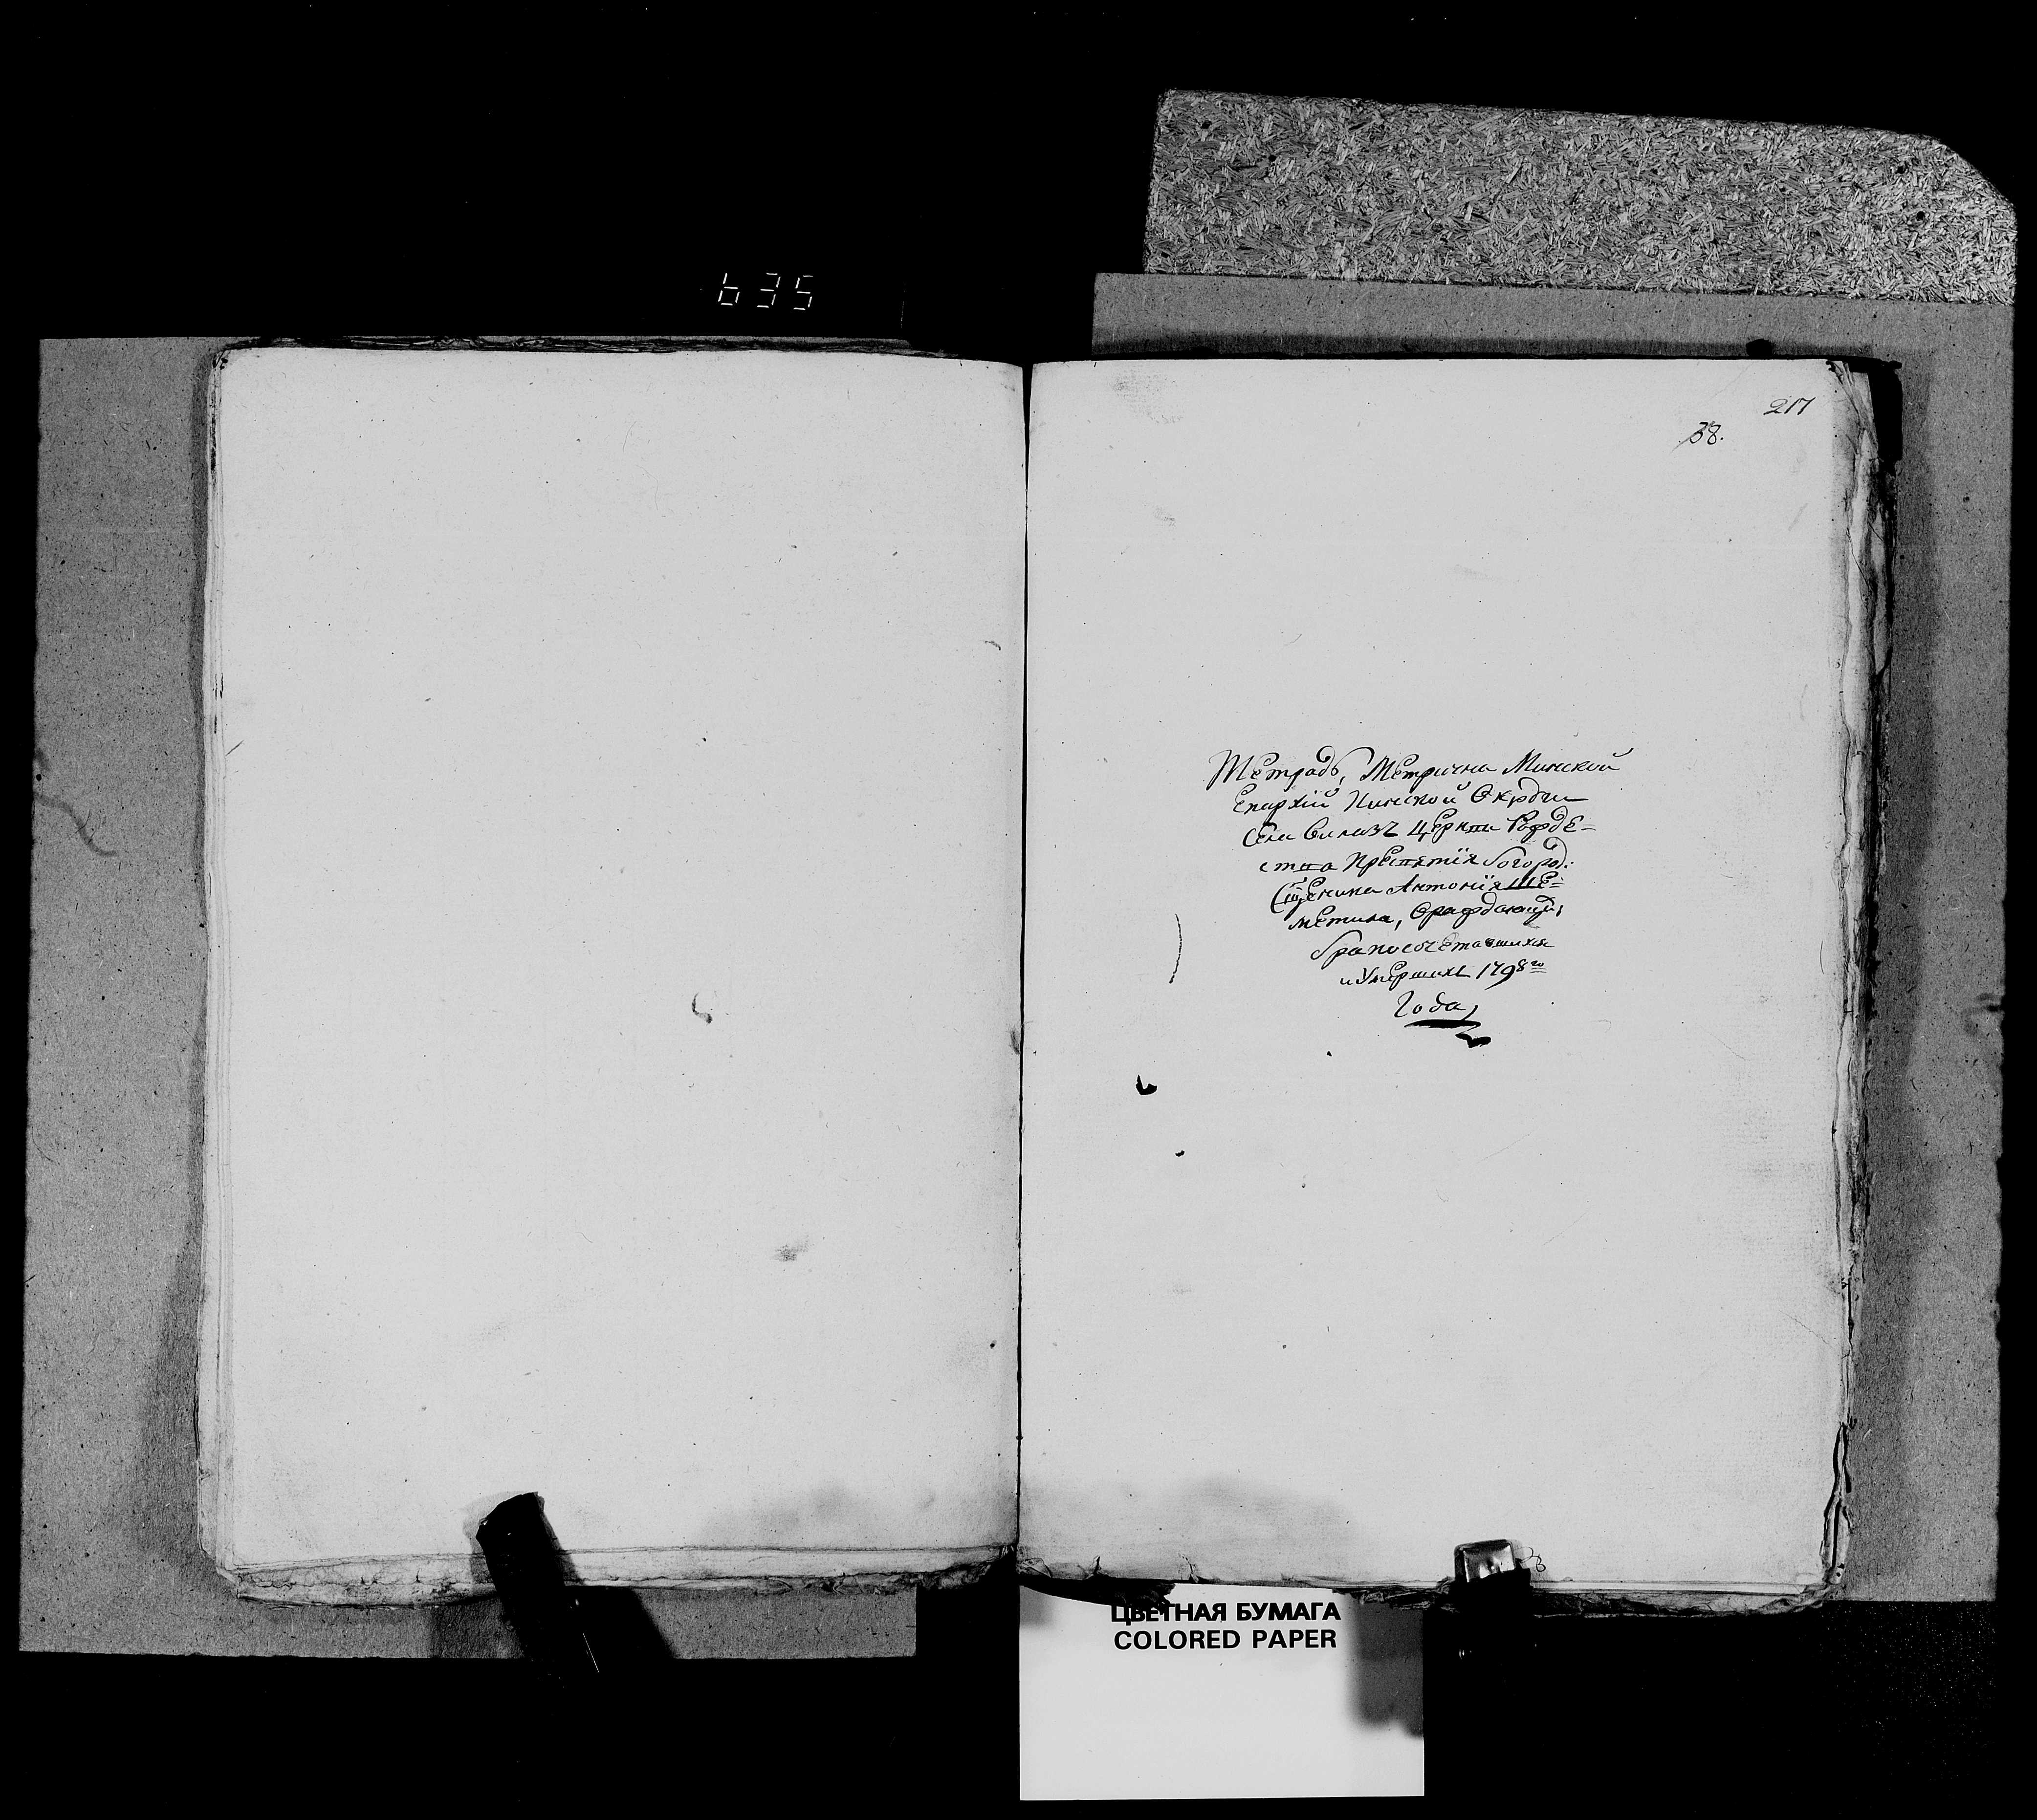 635
217
38.
Тетрадь, Метрична Минской
Епархіи Пинской Округи
Села Вилазъ Церкви Рожде=
ства Пресвятія Богород:
Сщеника Антонія Ше=
метила, Ораждающи,
бракосочетавшихся
и Умершихъ 1798го
Года,
ЦВЕТНАЯ БУМАГА
COLORED PAPER